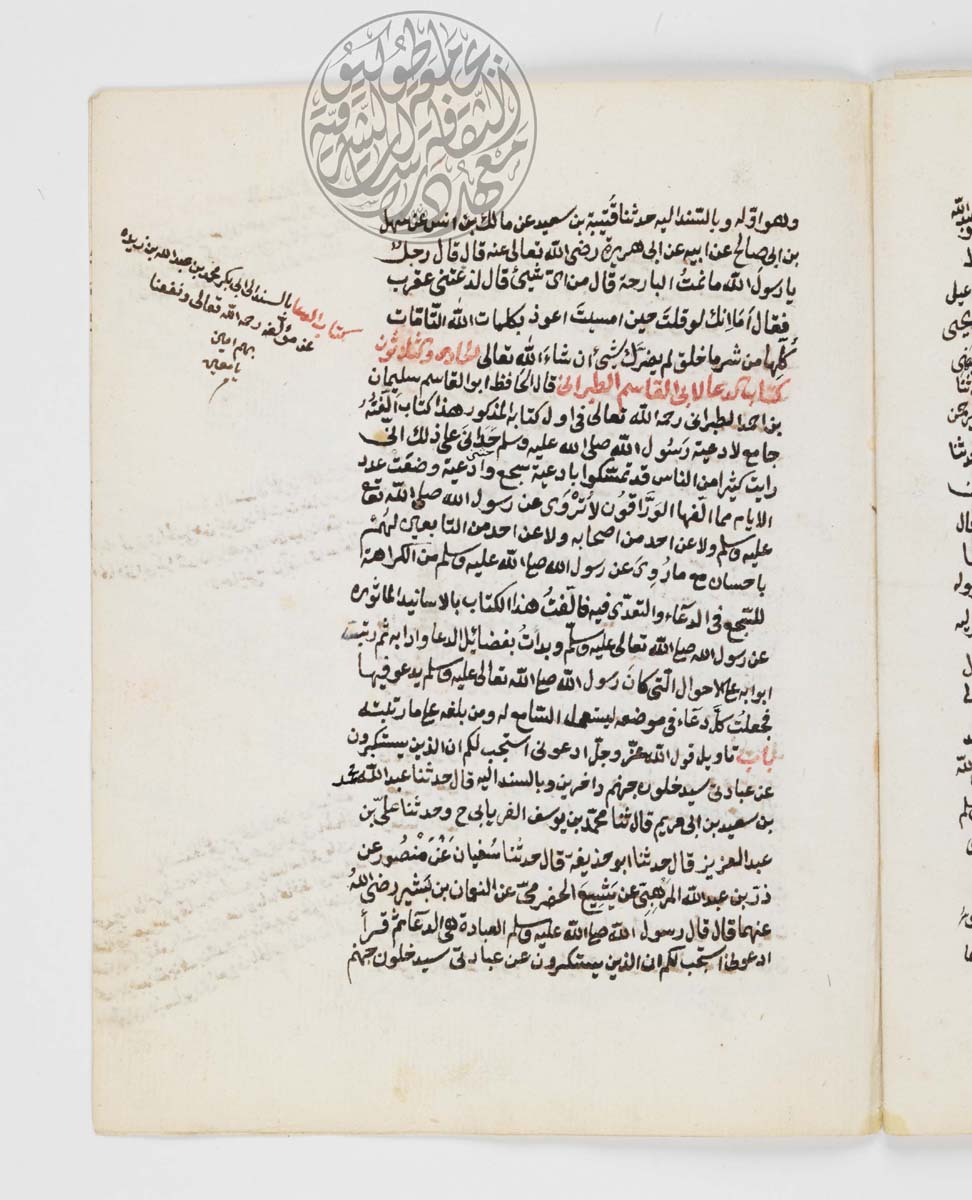 وهو اوّله وبالسّند اليه حدثنا قُتَيبة بن سعيد عن مالك بن انس عن سهل
بن ابى صالح عن ابيه عن ابى هريرة رضى الله تعالى عنه قال قال رجل
يا رسول الله ما نمتُ البارحة قال من اىّ شيئ قال لدغتنى عقرب
فقال أمَا انك لو قلتَ حين امسيتَ اعوذ بكلمات الله التّامّات
كُلِّها من شر ما خلق لم يضرّك شيئ ان شاء الله تعالى الحادى والثلاثون
كتاب الدعا لابى القاسم الطبرانى قال الحافظ ابو القاسم سليمان
بن احمد الطبرانى رحمه الله تعالى فى اول كتابه المذكور هذا كتاب ألّفتُه
جامع لادعية رسُول الله صلى الله عليه وسلم حَدَانى على ذلك انّى
رايت كثيرا من الناس قد تمسّكوا بادعية سجع وادعية وضعت عدد
الايام مما الّفها الورّاقون لا تُرْوَى عن رسول الله صلى الله تع
عليه وسلم ولا عن احد من اصحابه ولا عن احد من التابعين لهم
باحسان مع ما رُوِىَ عن رسول الله صلى الله عليه وسلم من الكراهة
للسّجع فى الدعاء والتعدّى فيه فالّفتُ هذا الكتاب بالاسانيد الماثورة
عن رسول الله صلى الله تعالى عليه وسلم وبدات بفضائل الدعا وادابه ثم رتبت
ابوابه على الاحوال الّتى كان رسول الله صلى الله تعالى عليه وسلم يدعو فيها
فجعلتُ كلّ دعاء فى موضعه ليستعمله السّامع له ومن بلغه على ما رتبته
باب تاويل قول الله عزّ وجلّ ادعونى استجب لكم ان الذين يستكبرون
عن عبادتى سيدخلون جهنم داخرين وبالسند اليه قال حدثنا عبد الله بن محمد
بن سعيد بن ابى مريم قال ثنا محمّد بن يوسف الفريابى ح وحدثنا علىّ بن
عبد العزيز قال حدثنا ابو حذيفة قال حدثنا سُفيان عَنْ مَنْصُور عن
ذرّ بن عبد الله المرهبىّ عن يُسَيع الحضرمىّ عن النعمان بن بَشير رضى الله
عنهما قال قال رسول الله صلى الله عليه وسلم العبادة هى الدعآء ثم قرأ
ادعونى استجب لكم ان الذين يستكبرون عن عبادتى سيدخلون جهنم
كتاب الدعا بالسند الى ابى بكر محمد بن عبد الله بن ريذة
عن مؤلّفه رحمه الله تعالى ونفعنا
بهم امين
يا معين